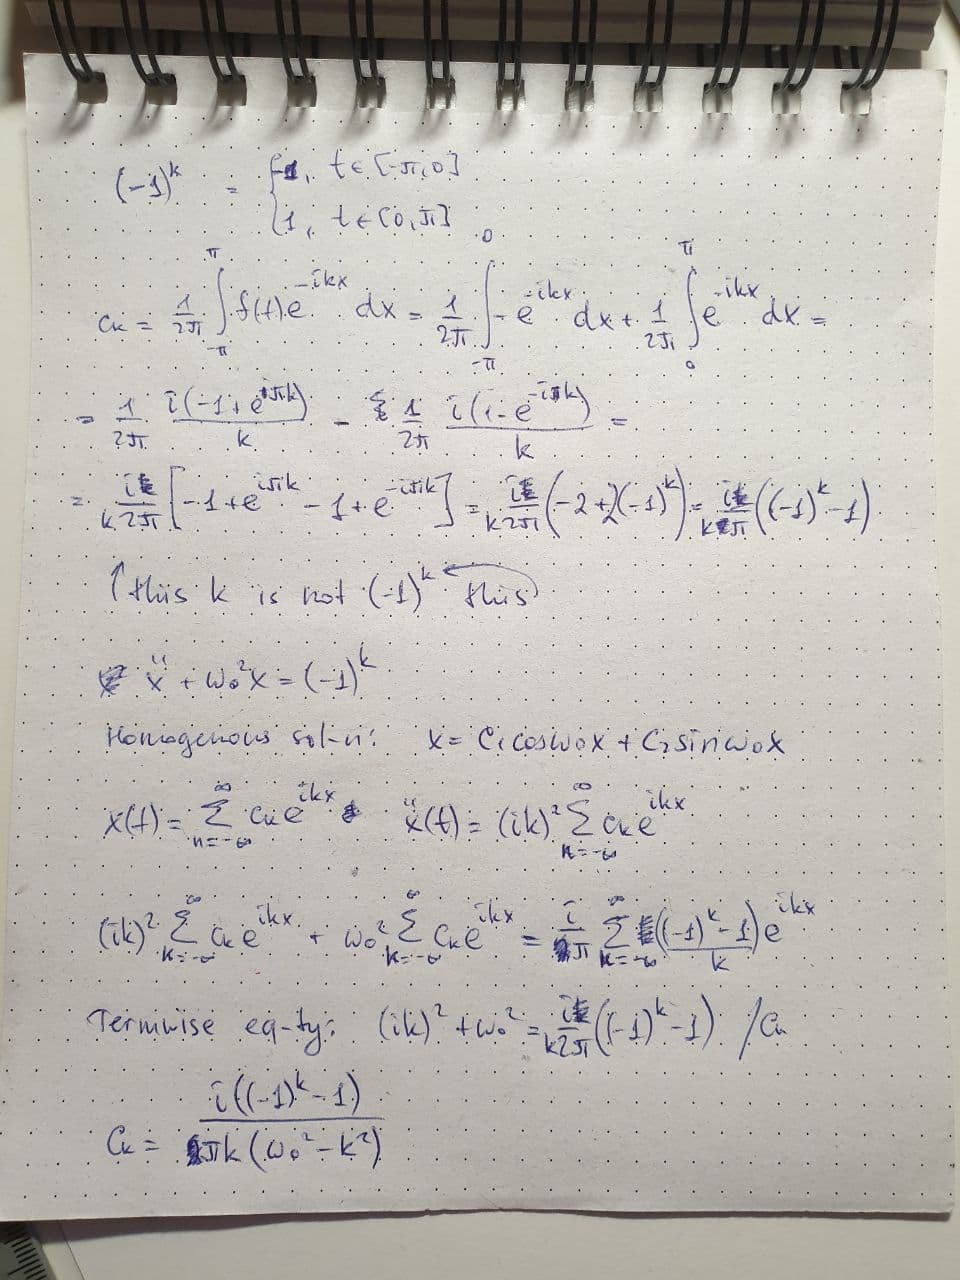 (-1)^k = { -1, t ∈ [-π, 0]
{ 1, t ∈ [0, π]
c_k = 1/2π ∫_{-π}^{π} f(t) e^{-ikx} dx = 1/2π ∫_{-π}^{0} -e^{-ikx} dx + 1/2π ∫_{0}^{π} e^{-ikx} dx =
= 1/2π i(-1+e^{iπk})/k - 1/2π i(1-e^{-iπk})/k =
= i/k2π [-1+e^{iπk} - 1+e^{-iπk}] = i/k2π (-2+2(-1)^k) = i/kπ ((-1)^k-1)
↑ this k is not (-1)^k this
ẍ + ω₀²x = (-1)^k
Homogenous sol-n: x = C₁cosω₀x + C₂sinω₀x
x(t) = Σ_{n=-∞}^{∞} c_k e^{ikx} ẍ(t) = (ik)² Σ_{k=-∞}^{∞} c_k e^{ikx}
(ik)² Σ_{k=-∞}^{∞} c_k e^{ikx} + ω₀² Σ_{k=-∞}^{∞} c_k e^{ikx} = i/π Σ_{k=-∞}^{∞} ((-1)^k-1)/k e^{ikx}
Termwise eq-ty: (ik)² + ω₀² = i/k2π ((-1)^k-1) /c_k
c_k = i((-1)^k-1)/πk(ω₀²-k²)